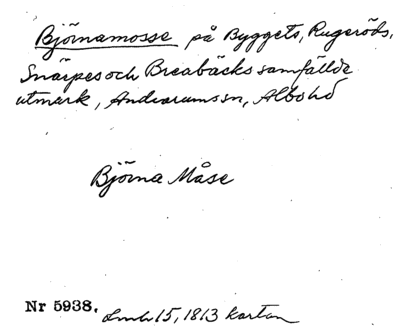 Björnamosse på Byggets, Rugeröds,
Snärpes och Breabäcks samfällde
utmark, Andrarumssn, Albohd
Björna Måse
Nr 5938. Lmh 15, 1813 kartan